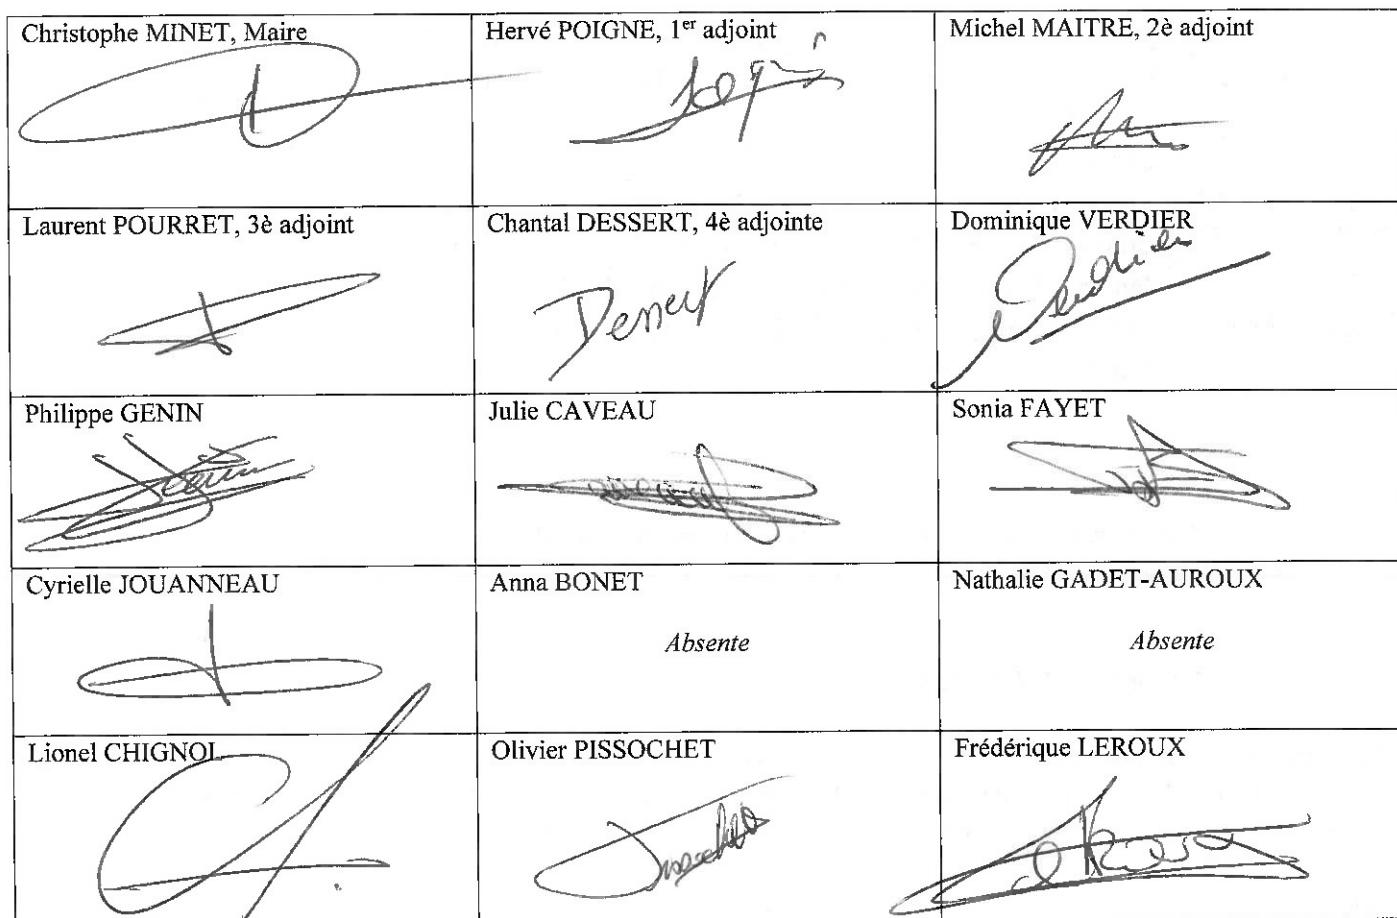 Christophe MINET, Maire
Hervé POIGNE, 1er adjoint
Michel MAITRE, 2è adjoint
Laurent POURRET, 3è adjoint
Chantal DESSERT, 4è adjointe
Dessert
Dominique VERDIER
Verdier
Philippe GENIN
Julie CAVEAU
Sonia FAYET
Cyrielle JOUANNEAU
Anna BONET
Absente
Nathalie GADET-AUROUX
Absente
Lionel CHIGNOL
Olivier PISSOCHET
Frédérique LEROUX